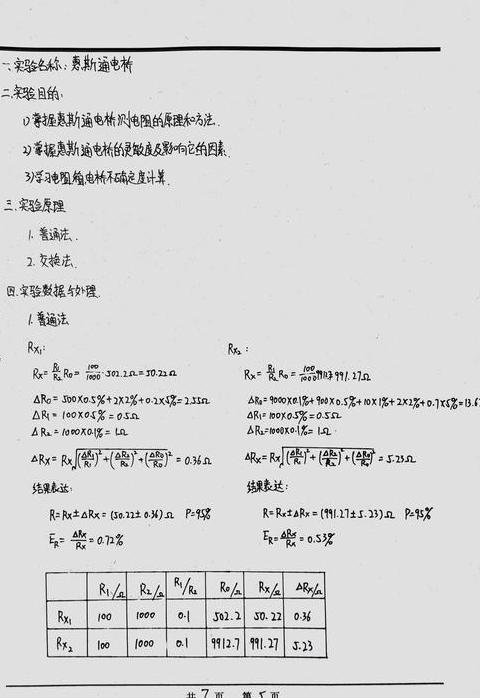 一、实验名称：惠斯通电桥
二、实验目的：
1)掌握惠斯通电桥测电阻的原理和方法.
2)掌握惠斯通电桥的灵敏度及影响它的因素.
3)学习电阻箱电桥不确定度计算.
三、实验原理
1. 普通法.
2. 交换法.
四.实验数据与处理.
1.普通法
Rx₁:
Rx = R₁/R₂ R₀ = 100/1000 · 502.2Ω = 50.22Ω
ΔR₀ = 500×0.5% + 2×2% + 0.2×5% = 2.55Ω
ΔR₁ = 100×0.5% = 0.5Ω
ΔR₂ = 1000×0.1% = 1Ω
ΔRx = Rx√((ΔR₁/R₁)² + (ΔR₂/R₂)² + (ΔR₀/R₀)²) = 0.36Ω
结果表达:
R = Rx ± ΔRx = (50.22 ± 0.36)Ω P=95%
E_R = ΔRx/Rx = 0.72%
Rx₂:
Rx = R₁/R₂ R₀ = 100/1000 991.27Ω
ΔR₀ = 9000×0.1% + 900×0.5% + 10×1% + 2×2% + 0.7×5% = 13.6
ΔR₁ = 100×0.5% = 0.5Ω
ΔR₂ = 1000×0.1% = 1Ω
ΔRx = Rx√((ΔR₁/R₁)² + (ΔR₂/R₂)² + (ΔR₀/R₀)²) = 5.23Ω
结果表达:
R = Rx ± ΔRx = (991.27 ± 5.23)Ω P=95%
E_R = ΔRx/Rx = 0.53%
R₁/Ω R₂/Ω R₁/R₂ R₀/Ω Rx/Ω ΔRx/Ω
Rx₁ 100 1000 0.1 502.2 50.22 0.36
Rx₂ 100 1000 0.1 9912.7 991.27 5.23
共 7 页 第 5 页